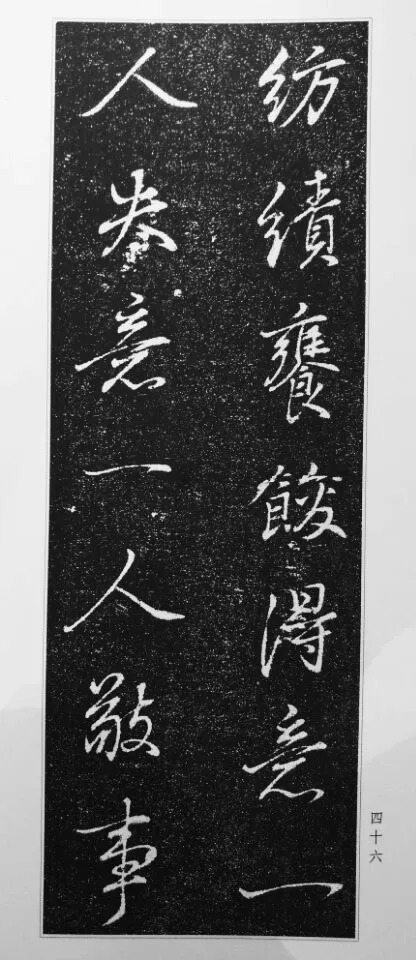 紡績饔餕得意一
人失意一人敬事
四十六